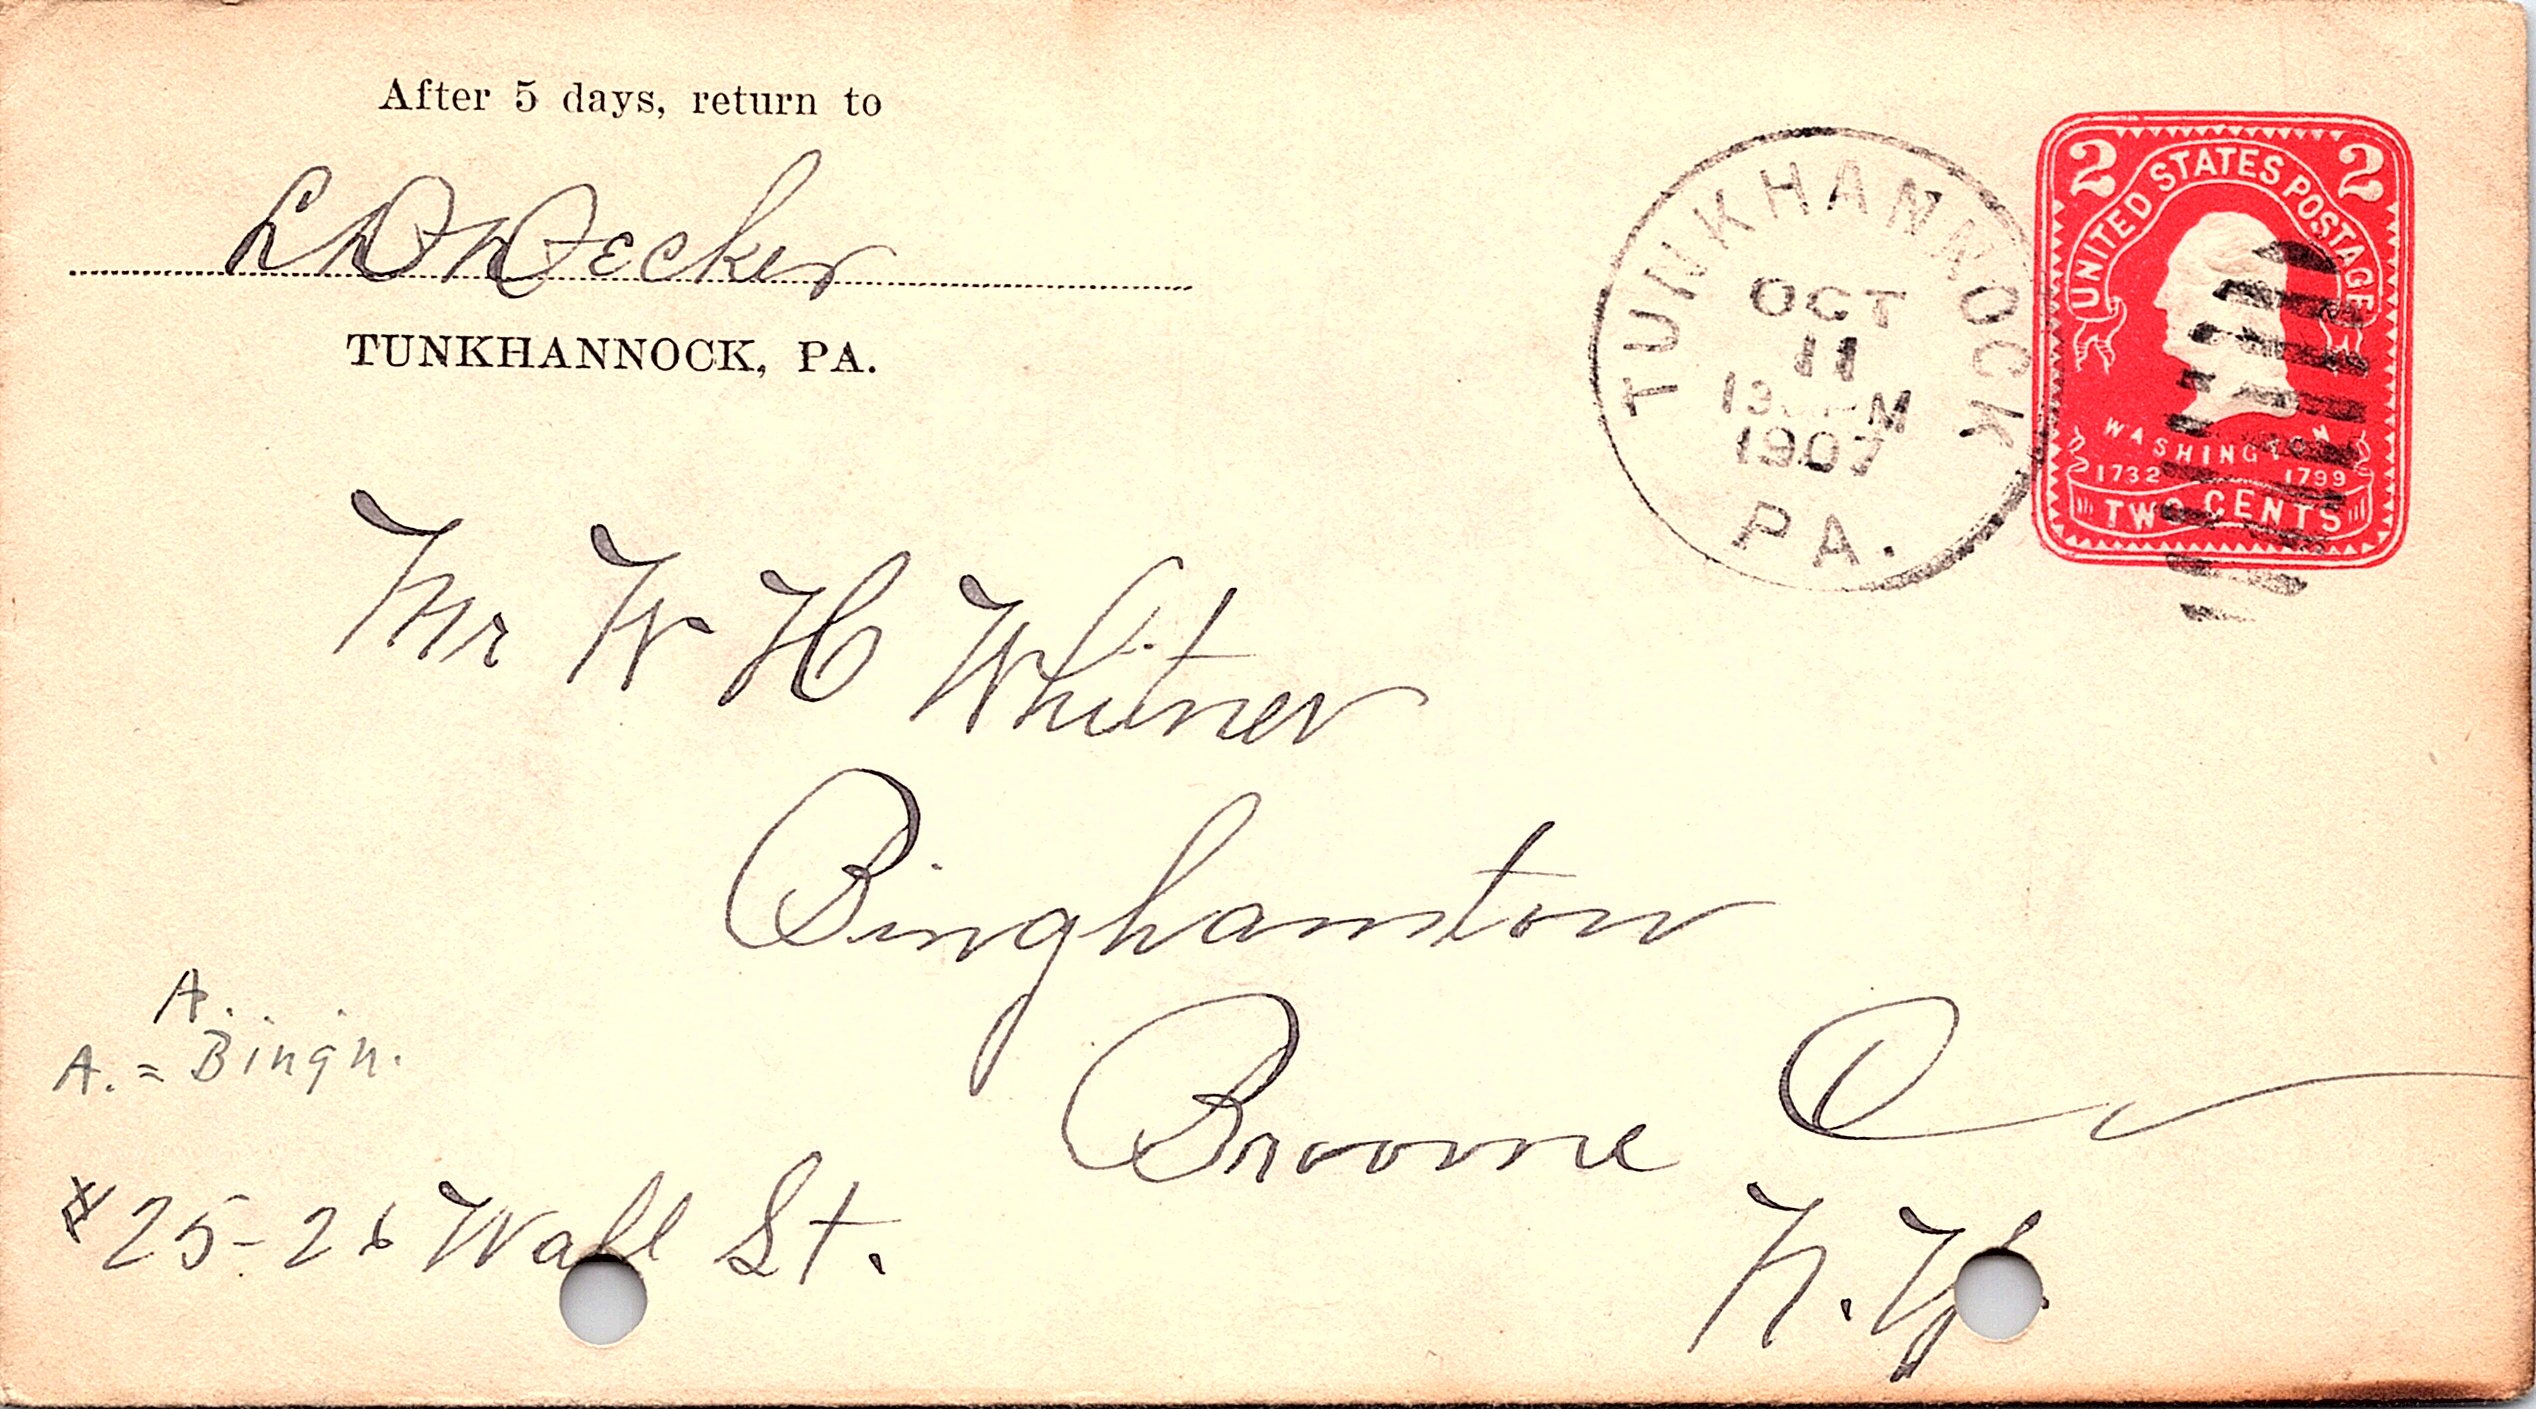 After 5 days, return to
Decker
TUNKHANNOCK, PA.
TUNKHANNOCK
OCT
11
1907
PA.
2 2
UNITED STATES POSTAGE
WASHINGTON
1732 1799
TWO CENTS
Mr W H Whitner
Binghamton
Broome Co
N.Y.
A.
A. = Bingh.
25-26 Wall St.